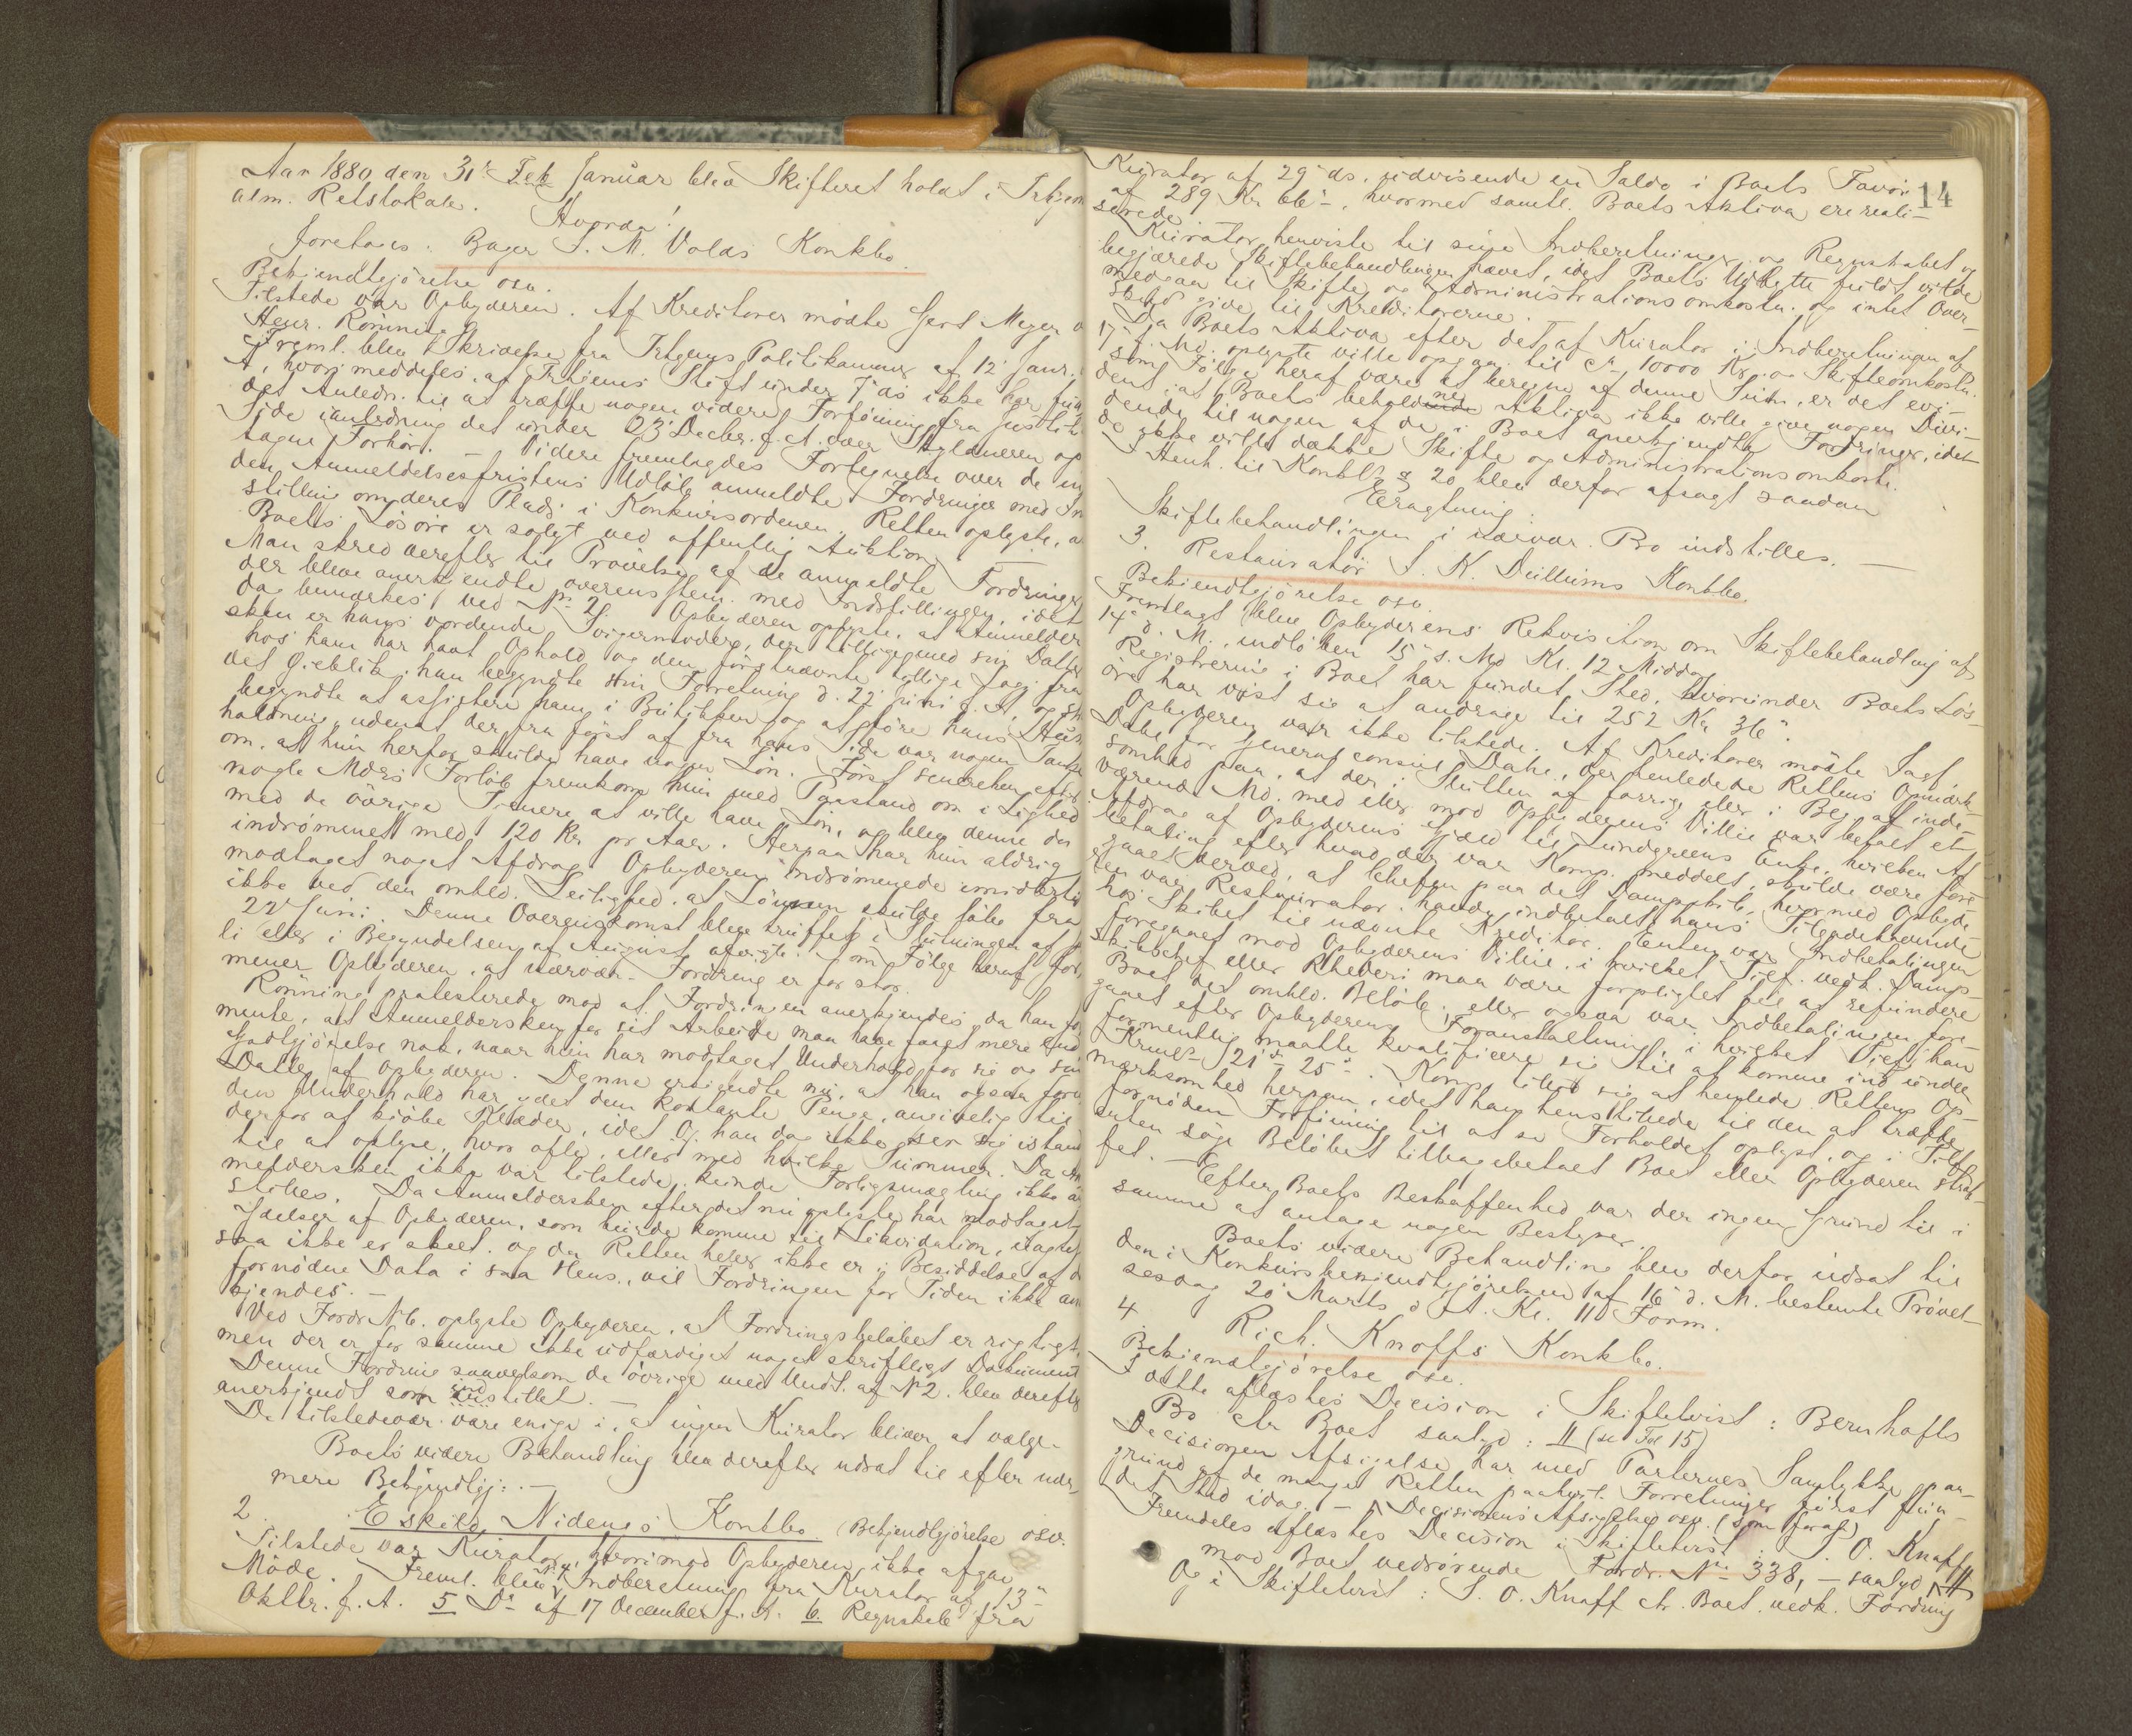 Aar 1880, den 31te Feb Januar blev Skifteret holdt i Trhjem
alm. Retslokale.
Hvorda!
Foretages: Bager S. M. Volds Konkbo.
Bekjendtgjörelse osv.
Tilstede var Opbyderen. Af Kreditorer mödte Gert Meyer
Hegr. Rönning
Freml. blev Skrivelse fra Trhjems Politikammer af 12 Janr.
A, hvori meddeles, at Trhjems Stift under 7de ds ikke har
det Anledn. til at træffe nogen videre Forföining fra Justits
Side i anledning det under 23 Decbr. f. A. over Skyldneren op
tagne Forhör. — Videre fremlagdes Fortegnelse over de in
den Anmeldelsesfristens Udlöb anmeldte Fordringer med In
stilling om deres Plads i Konkursordenen. Retten oplyste, a
Boets Lösöre er solgt ved offentlig Auktion.
Man skred derefter til Prövelse af de anmeldte Fordringer
der bleve anerkjendte overensstem. med Indstillingen, idet
da bemærkes ved No 2, Opbyderen oplyste, at Anmelder
sken er hans vordende Svigermoder, der tilligemed sin Datter
hos ham har havt Ophold og dem förstnævnte tillige Fag, fra
det Öieblik, han begyndte sin Forretning d. 22 Juni f. A, og
begyndte at assistere ham i Butikken og at gjöre hans Hus
holdning, uden at der fra först af fra hans Side var nogen Tanke
om, at hun herfor skulde have nogen Lön. Först senerehen efter
nogle Mdrs Forlöb fremkom hun med Paastand om i Lighed
med de övrige Tjenere at ville have Lön, og blev denne da
indrömmet med 120 Kr pr Aar. Herpaa har hun aldrig
modtaget noget Afdrag. Opbyderen indrömmede imidlertid
ikke ved den omhld. Leilighed, at Lönnen skulde löbe fra
22de Juni. Denne Overenskomst blev truffet i Slutningen af Ju
li eller i Begyndelsen af August afvigte. Som Fölge heraf for
mener Opbyderen, at nærvær. Fordring er for stor.
Rönning protesterede mod at Fordringen anerkjendes, da han for
mente, at Anmeldersken for sit Arbeide maa have faaet mere end
Godtgjörelse nok, naar hun har modtaget Underhold for sig og sin
Datter af Opbyderen. Denne erkjendte nu, at han ogsaa foru
den Underhold har ydet dem kontante Penge, angivelig til
derfor at kjöbe Klæder, idet Og han dog ikke ser sig istand
til at oplyse, hvor ofte, eller med hvilke Summer. Da An
meldersken ikke var tilstede, kunde Forligsmægling ikke an
stilles. Da Anmeldersken efter det nu oplyste har modtaget
Ydelser af Opbyderen, som kunde komme til Likvidation, uagtet
saa ikke er skeet, og da Retten heller ikke er i Besiddelse af de
fornödne Data i saa Hens., vil Fordringen for Tiden ikke an
kjendes. —
Ved Fordr. N 6. oplyste Opbyderen, at Fordringsbelöbet er rigtigt,
men der er for samme ikke udfærdiget noget skriftligt Dokument
Denne Fordring saavelsom de övrige med Undt. af N 2. blev derefter
anerkjendt som indstillet. —
De tilstedevær. vare enige i, at ingen Kurator bliver at vælge.
Boets videre Behandling blev derefter udsat til efter nær
mere Bekjendtgj: —
2. Eskild Nidengs Konkbo. (Bekjendtgjörelse osv.
Tilstede var Kurator, hvorimod Opbyderen ikke afgav
Möde. Freml. blev N 4. Indberetning fra Kurator af 13de
Oktbr. f. A. 5 Do af 17 December f. A. 6. Regnskab fra
14
Kurator af 29de ds. udvisende en Saldo i Boets Favör
af 289 Kr 66 ö, hvormed samtl. Boets Aktiva ere reali-
serede.
Kurator henviste til sine Indberetninger og Regnskabet og
begjærede Skiftebehandlingen hævet, idet Boets Udbytte fuldt vilde
medgaa til Skifte og Administrationsomkostn. og intet Over-
skud give til Kreditorerne.
Da Boets Aktiva efter det af Kurator i Indberetningen af
17de f. Md. oplyste ville opgaa til ca 10000 Kr, og Skifteomkostn.
som Fölge heraf være at beregne af denne Sum, er det evi-
dent, at Boets beholdne Aktiva ikke ville give nogen Divi-
dende til nogen af de i Boet anerkjendte Fordringer, idet
de ikke ville dække Skifte og Administrationsomkostn.
I Henh. til Konkl § 20 blev derfor afsagt saadan
Eragtning:
Skiftebehandlingen i nærvær. Bo indstilles. —
3. Restauratör S. K. Dullums Konkbo.
Bekjendtgjörelse osv.
Fremlagt blev Opbyderens Rekvisition om Skiftebehandling af
14de d. M. indlöben 15de s. Md Kl. 12 Middag.
Registrering i Boet har fundet Sted, hvorunder Boets Lös-
öre har vist sig at andrage til 252 Kr 36 ö.
Opbyderen var ikke tilstede. Af Kreditorer mödte Sagf.
Dahl for Generalconsul Dahl, der henledede Rettens Opmærk-
somhed paa, at der i Slutten af forrige eller i Beg. af inde-
værende Md. med eller mod Opbyderens Villie var betalt et
Afdrag af Opbyderens Gjæld til Lundgreens Enke, hvilken Af
betaling efter hvad der var Komp. meddelt, skulde være fore-
gaaet derved, at Chefen paa det Dampskib, hvormed Opbyde-
ren var Restauratör, havde indbetalt hans Tilgodehavende
hos Skibet til nævnte Kreditor. Enten var Indbetalingen
foregaaet mod Opbyderens Villie, i hvilket Tilf. vedk. Damp-
skibschef eller Rhederi maa være forpligtet til at refundere
Boet det omhld. Belöb, eller ogsaa var Indbetalingen fore-
gaaet efter Opbyderens Foranstaltning, i hvilket Tilf. han
formentlig maatte kvalificere sig til at komme ind under
Krmls. 21de § 25. Komp. tillod sig at henlede Rettens Op-
mærksomhed herpaa, idet han henstillede til den at træffe
fornöden Forföining til at se Forholdet oplyst, og i Tilf.
enten söge Belöbet tilbagebetalt Boet eller Opbyderen straf-
fet. —
Efter Boets Beskaffenhed var der ingen Grund til i
samme at antage nogen Bestyrer.
Boets videre Behandling blev derfor udsat til
den i Konkursbekjendtgjörelsen af 16de d. M. bestemte Prövel-
sesdag 20 Marts d. A. Kl. 11 Form.
4. Rich. Knoffs Konkbo.
Bekjendtgjörelse osv.
I dette aflæstes Decision i Skiftetvist: Bernhofts
Bo ctr Boet saalyd: 11 (se Fol 15)
Decisionen Afsigelse har med Parternes Samtykke paa-
grund af de mange Retten paahvil. Forretninger först fun-
det Sted idag. — Decisionens Afsigelse osv. (som foran)
Fremdeles aflæstes Decision i Skiftetvist: S. O. Knoff
mod Boet vedrörende Fordr. No 338, — saalyd
Og i Skiftetvist: S. O. Knoff ctr. Boet vedk. Fordring